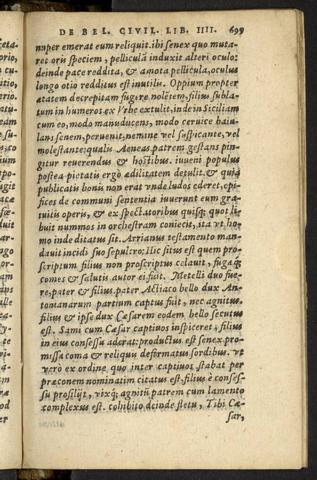 DE BEL. CIVIL. LIB. IIII. 699
nuper emerat eum reliquit. ibi senex quo muta⸗
ret oris speciem, pelliculā induxit alteri oculo:
deinde pace reddita, & amota pellicula, oculus
longo otio redditus est inutilis. Oppium propter
ætatem decrepitam fugere nolētem, filius subla⸗
tum in humeros ex Vrbe extulit, inde in Siciliam
cum eo, modo manuducens, modo ceruice baiu⸗
lans senem, peruenit, nemine vel suspicante, vel
molestante: qualis Aeneas patrem gestans pin⸗
gitur reuerendus & hostibus. iuueni populus
postea pietatis ergò ædilitatem detulit. & quia
publicatis bonis non erat vnde ludos ederet, opi⸗
fices de communi sententia iuuerunt eum gra⸗
tuitis operis, & ex spectatoribus quisq; quot li⸗
buit nummos in orchestram coniecit, ita vt ho⸗
mo inde ditatus sit. Arrianus testamento man⸗
dauit incidi suo sepulcro: Hic situs est quem pro⸗
scriptum filius non proscriptus celauit, fugæq;
comes & salutis autor ei fuit. Metelli duo fue⸗
re, pater & filius. pater Actiaco bello dux An⸗
tonanarum partium captus fuit, nec agnitus.
filius & ipse dux Cæsarem eodem bello secutus
est. Sami cum Cæsar captiuos inspiceret, filius
in eius consessu aderat: productus est senex pro⸗
missa coma & reliquis deformatus sordibus. vt
verò ex ordine quo inter captiuos stabat per
præconem nominatim citatus est. filius è conses⸗
su prosilijt, vixq; agnitū patrem cum lamento
complexus est. cohibito deinde fletu, Tibi Cæ⸗
sar,